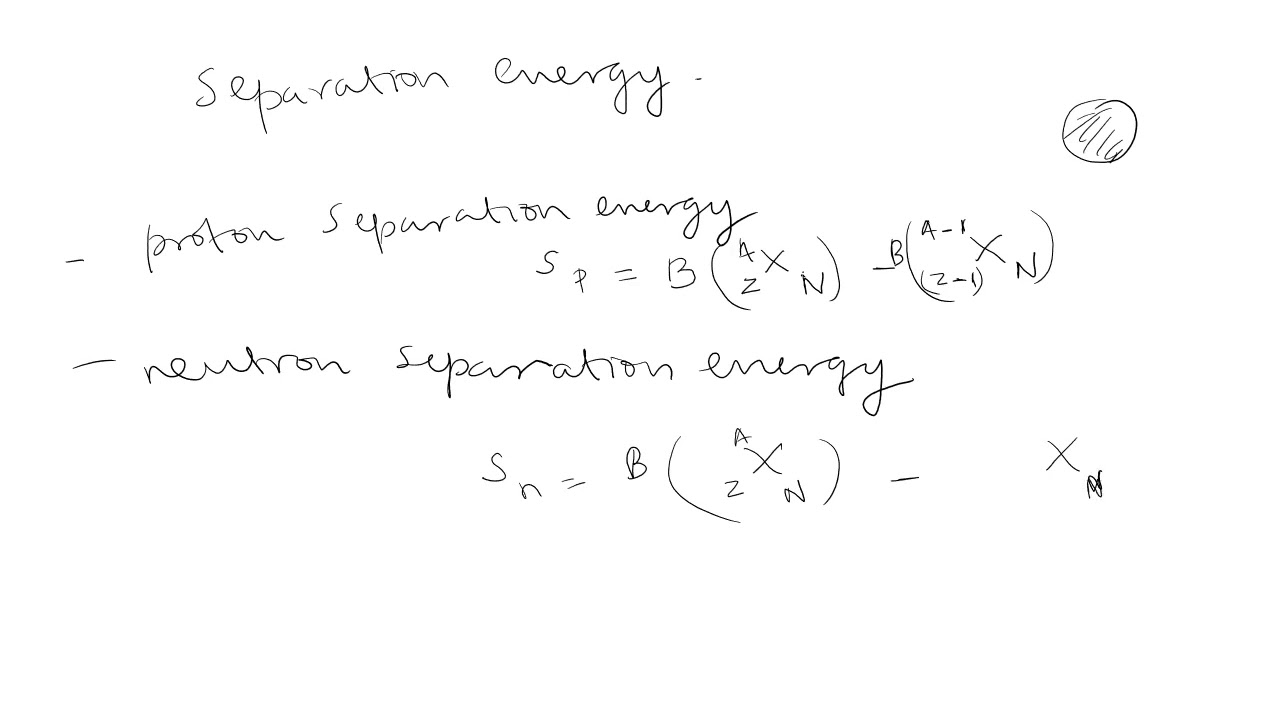 Separation energy.
- proton separation energy
S_p = B(^A_Z X_N) - B(^{A-1}_{(Z-1)} X_N)
- neutron separation energy
S_n = B(^A_Z X_N) - X_N